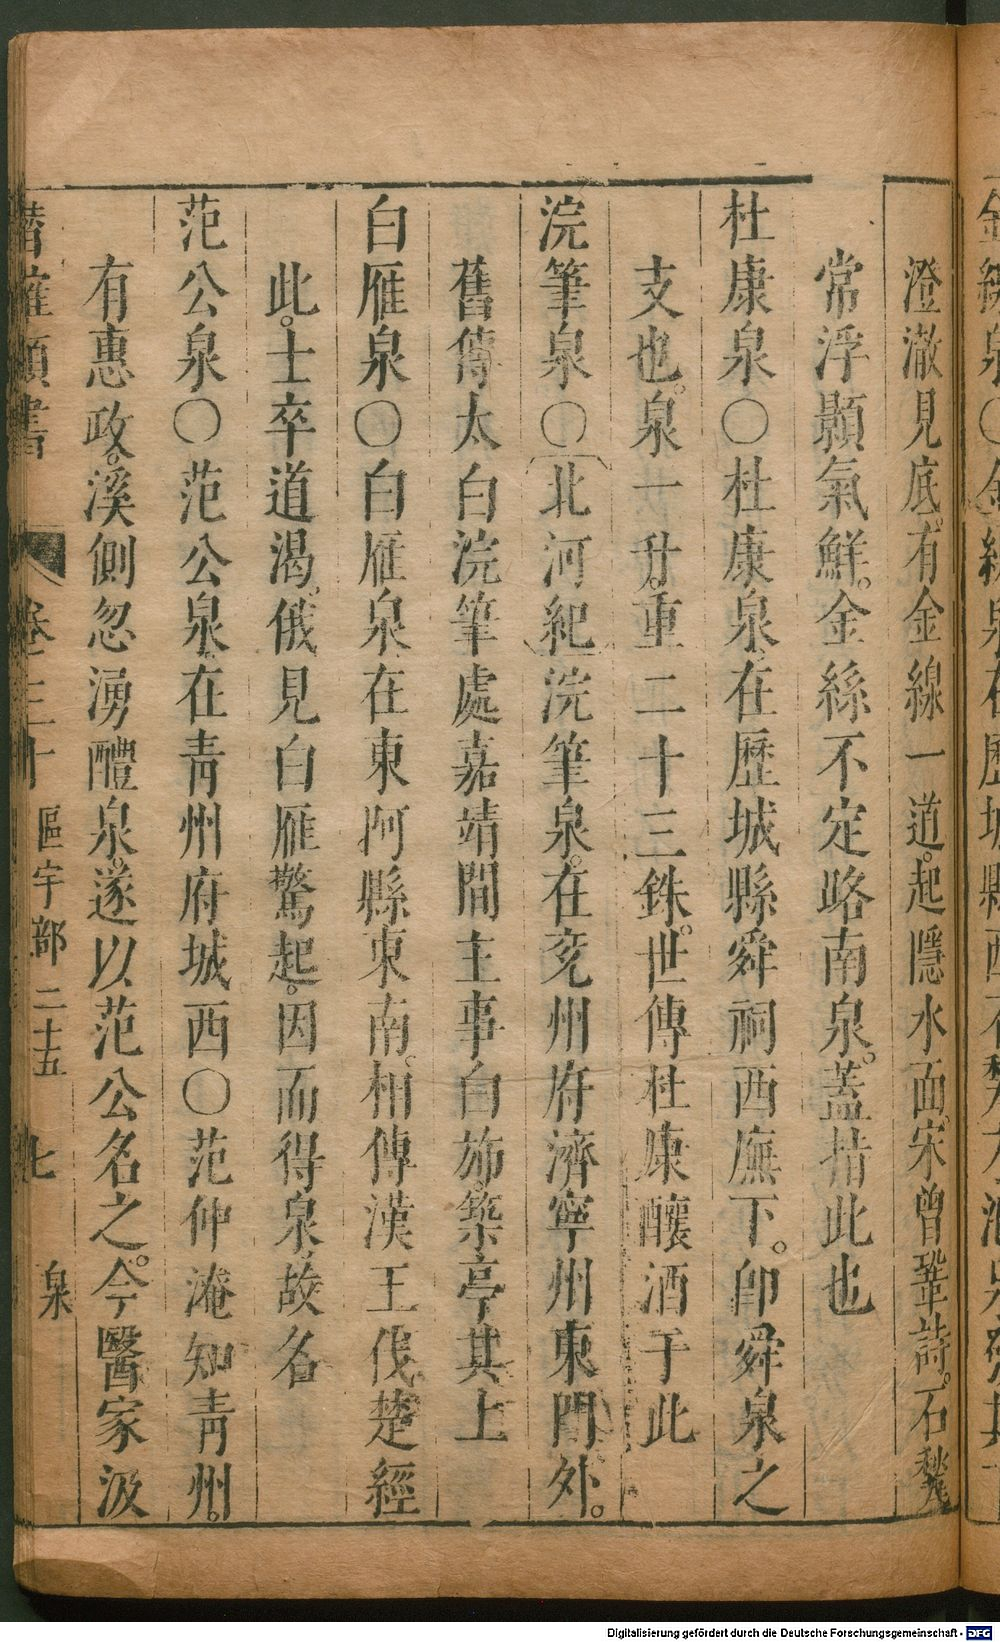 澄澈見底。有金線一道。起隱水面。宋曾鞏詩。石甃
常浮顥氣鮮。金絲不定路南泉。蓋指此也
杜康泉〇杜康泉。在歷城縣舜祠西廡下。卽舜泉之
支也。泉一升。重二十三銖。世傳杜康釀酒于此
浣筆泉〇北河紀浣筆泉。在兖州府濟寧州東門外。
舊傳太白浣筆處嘉靖間主事白斾築亭其上
白雁泉〇白雁泉在東阿縣東南。相傳漢王伐楚經
此。士卒道渴。俄見白雁驚起。因而得泉。故名
范公泉〇范公泉。在靑州府城西〇范仲淹知靑州。
有惠政。溪側忽湧醴泉。遂以范公名之。今醫家汲
潛確類書 卷三十 區宇部二十五 七 泉
Digitalisierung gefördert durch die Deutsche Forschungsgemeinschaft - DFG